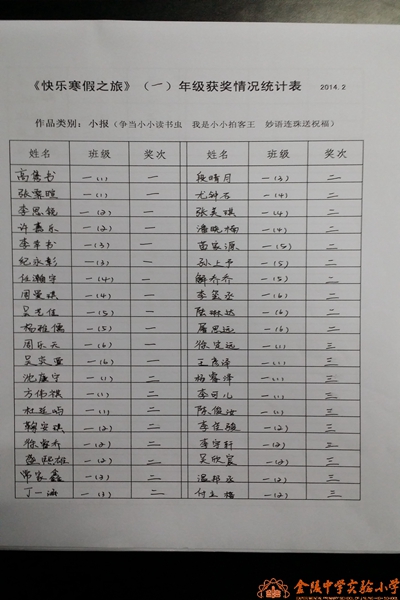 《快乐寒假之旅》（一）年级获奖情况统计表 2014.2
作品类别：小报（争当小小读书虫 我是小小拍客王 妙语连珠送祝福）
姓名 班级 奖次 姓名 班级 奖次
一(1) 一 段晴月 一(3) 二
一(1) 一 尤钟石 一(4) 二
李思锐 一(2) 一 张美琪 一(4) 二
许嘉乐 一(2) 一 潘晓楠 一(4) 二
一(3) 一 苗家源 一(5) 二
纪永彰 一(3) 一 孙上予 一(5) 二
任瀚宇 一(4) 一 解乔乔 一(5) 二
周爱琪 一(4) 一 一(6) 二
一(5) 一 陆琳达 一(6) 二
杨雅儒 一(5) 一 屠思远 一(6) 二
周乐天 一(6) 一 徐定远 一(1) 三
吴奕萱 一(6) 一 王彦泽 一(1) 三
沈康宁 一(1) 二 杨睿泽 一(1) 三
方伟祺 一(1) 二 李可儿 一(1) 三
一(1) 二 陈俊汝 一(1) 三
韩安琪 一(2) 二 李佳骏 一(2) 三
徐睿乔 一(2) 二 李宇轩 一(2) 三
一(2) 二 吴欣宸 一(2) 三
常家鑫 一(2) 二 温邦丞 一(2) 三
丁一涵 一(3) 二 一(2) 三
金陵中学实验小学